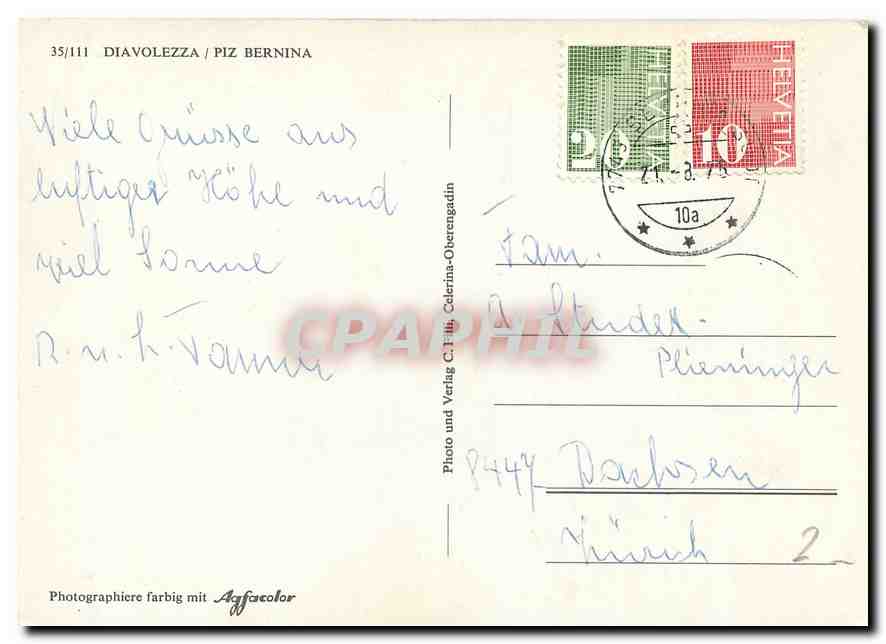 35/111 DIAVOLEZZA / PIZ BERNINA
Viele Grüsse aus
luftiger Höhe und
viel Sonne
R. u. h. Tanner
Photographiere farbig mit Agfacolor
Photo und Verlag C. Filli, Celerina-Oberengadin
HELVETIA
20
HELVETIA
10
21.-8.
10a
Fam.
A. Studer-
Plieninger
8447 Dachsen
Zürich
2
CPAPHIL